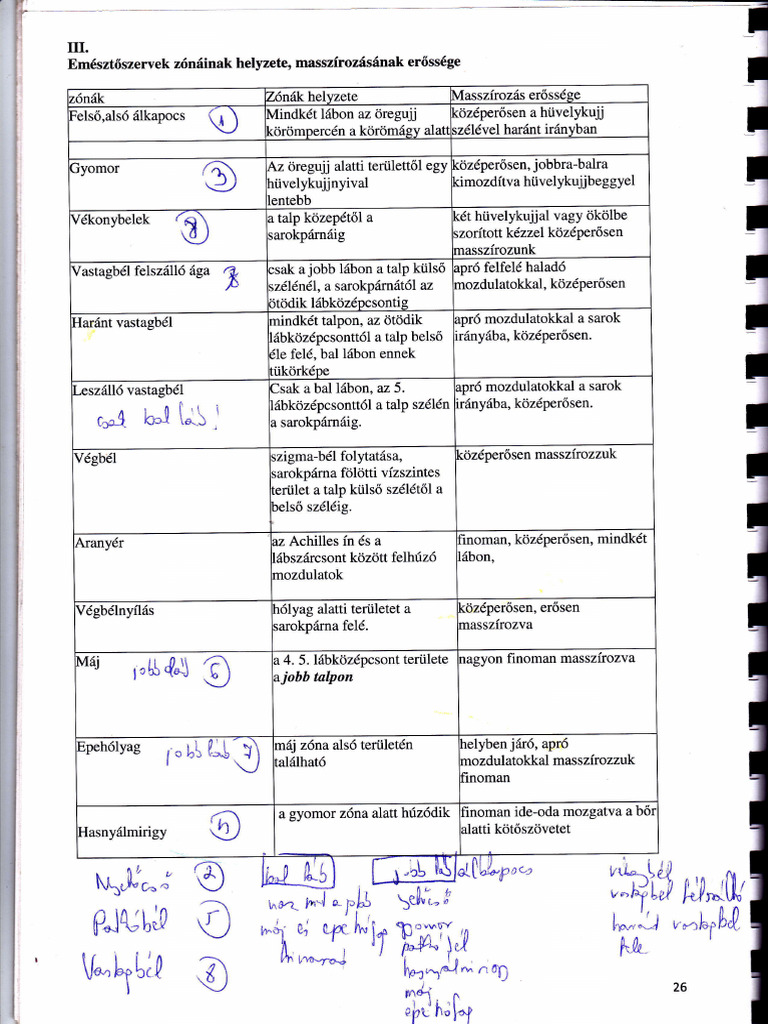 III.
Emésztőszervek zónáinak helyzete, masszírozásának erőssége
zónák Zónák helyzete Masszírozás erőssége
Felső,alsó álkapocs 1 Mindkét lábon az öregujj középerősen a hüvelykujj
körömpercén a körömágy alatt szélével haránt irányban
Gyomor 3 Az öregujj alatti területtől egy középerősen, jobbra-balra
hüvelykujjnyival kimozdítva hüvelykujjbeggyel
lentebb
Vékonybelek a talp közepétől a két hüvelykujjal vagy ökölbe
sarokpárnáig szorított kézzel középerősen
masszírozunk
Vastagbél felszálló ága csak a jobb lábon a talp külső apró felfelé haladó
szélénél, a sarokpárnától az mozdulatokkal, középerősen
ötödik lábközépcsontig
Haránt vastagbél mindkét talpon, az ötödik apró mozdulatokkal a sarok
lábközépcsonttól a talp belső irányába, középerősen.
éle felé, bal lábon ennek
tükörképe
Leszálló vastagbél Csak a bal lábon, az 5. apró mozdulatokkal a sarok
csak bal láb! lábközépcsonttól a talp szélén irányába, középerősen.
a sarokpárnáig.
Végbél szigma-bél folytatása, középerősen masszírozzuk
sarokpárna fölötti vízszintes
terület a talp külső szélétől a
belső széléig.
Aranyér az Achilles ín és a finoman, középerősen, mindkét
lábszárcsont között felhúzó lábon,
mozdulatok
Végbélnyílás hólyag alatti területet a középerősen, erősen
sarokpárna felé. masszírozva
Máj jobb láb 6 a 4. 5. lábközépcsont területe nagyon finoman masszírozva
a jobb talpon
Epehólyag jobb láb 7 máj zóna alsó területén helyben járó, apró
található mozdulatokkal masszírozzuk
finoman
Hasnyálmirigy a gyomor zóna alatt húzódik finoman ide-oda mozgatva a bőr
alatti kötőszövetet
Nyelőcső 2 bal láb jobb láb álkapocs vékonybél
Patkóbél 5 máj és epehólyag gyomor haránt vastagbél
Vastagbél 8 hasnyálmirigy
máj
epehólyag
26